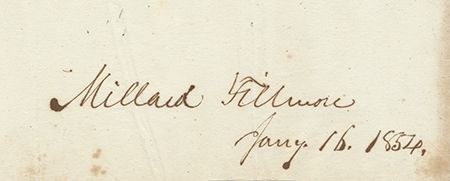 Millard Fillmore
Jany. 16. 1854.